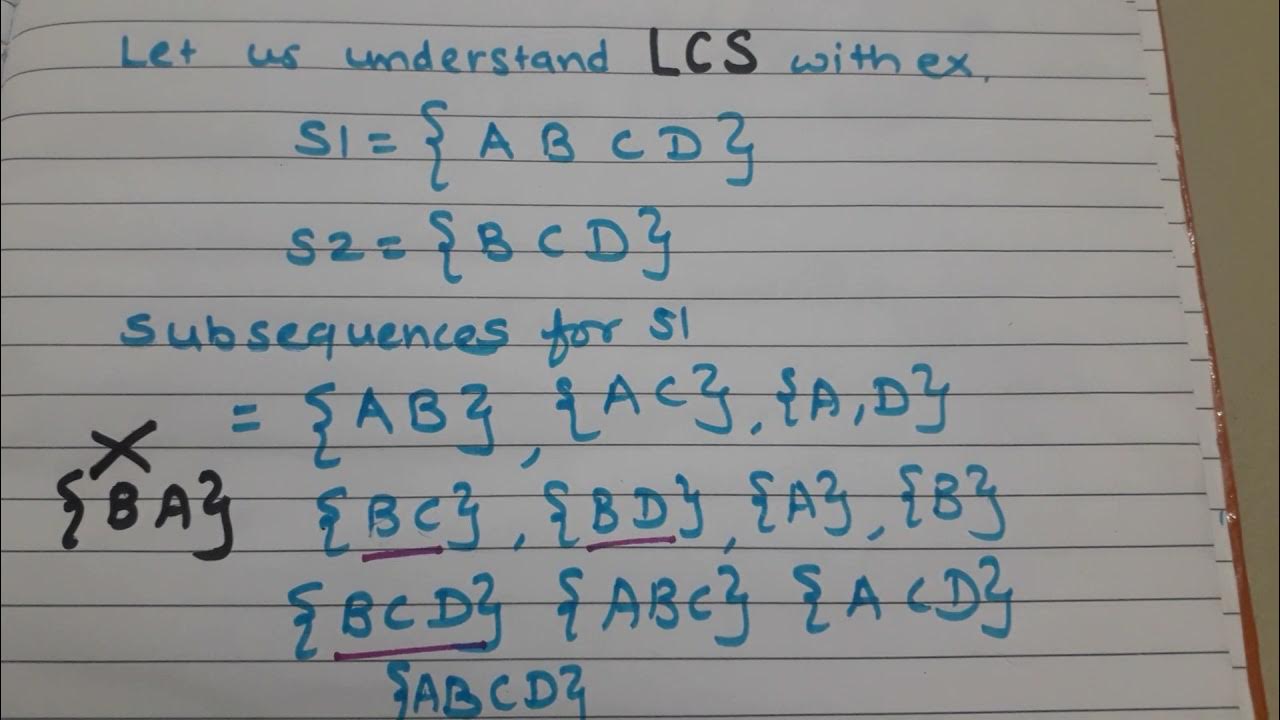 Let us understand LCS with ex.
S1 = { A B C D }
S2 = { B C D }
Subsequences for S1
= { A B } , { A C } , { A , D }
X
{ B A } { B C } , { B D } , { A } , { B }
{ B C D } { A B C } { A C D }
{ A B C D }